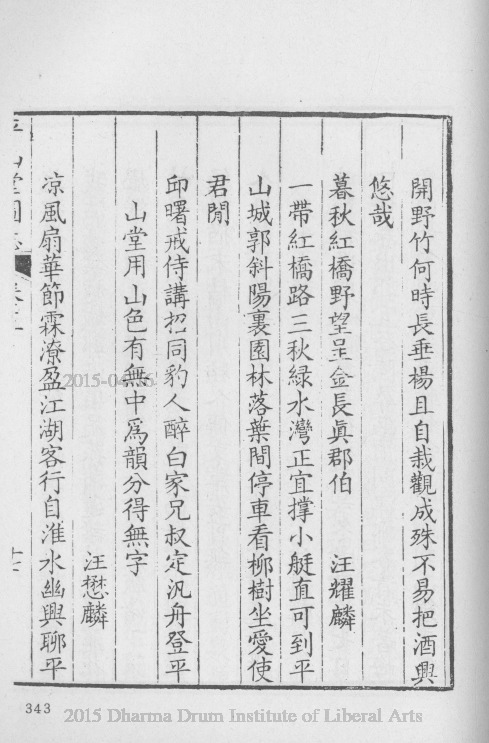 開野竹何時長垂楊且自栽觀成殊不易把酒興
悠哉
暮秋紅橋野望呈金長真郡伯 汪耀麟
一帶紅橋路三秋綠水灣正宜撑小艇直可到平
山城郭斜陽裏園林落葉間停車看柳樹坐愛使
君閒
邱曙戒侍講招同豹人醉白家兄叔定汎舟登平
山堂用山色有無中為韻分得無字
汪懋麟
凉風扇華節霖潦盈江湖客行自淮水幽興聊平
平山堂圖志
343
2015 Dharma Drum Institute of Liberal Arts